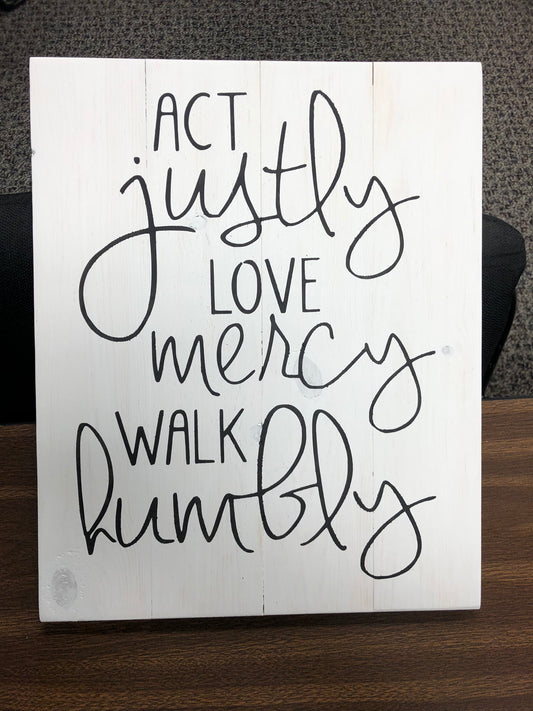 ACT
justly
LOVE
mercy
WALK
humbly